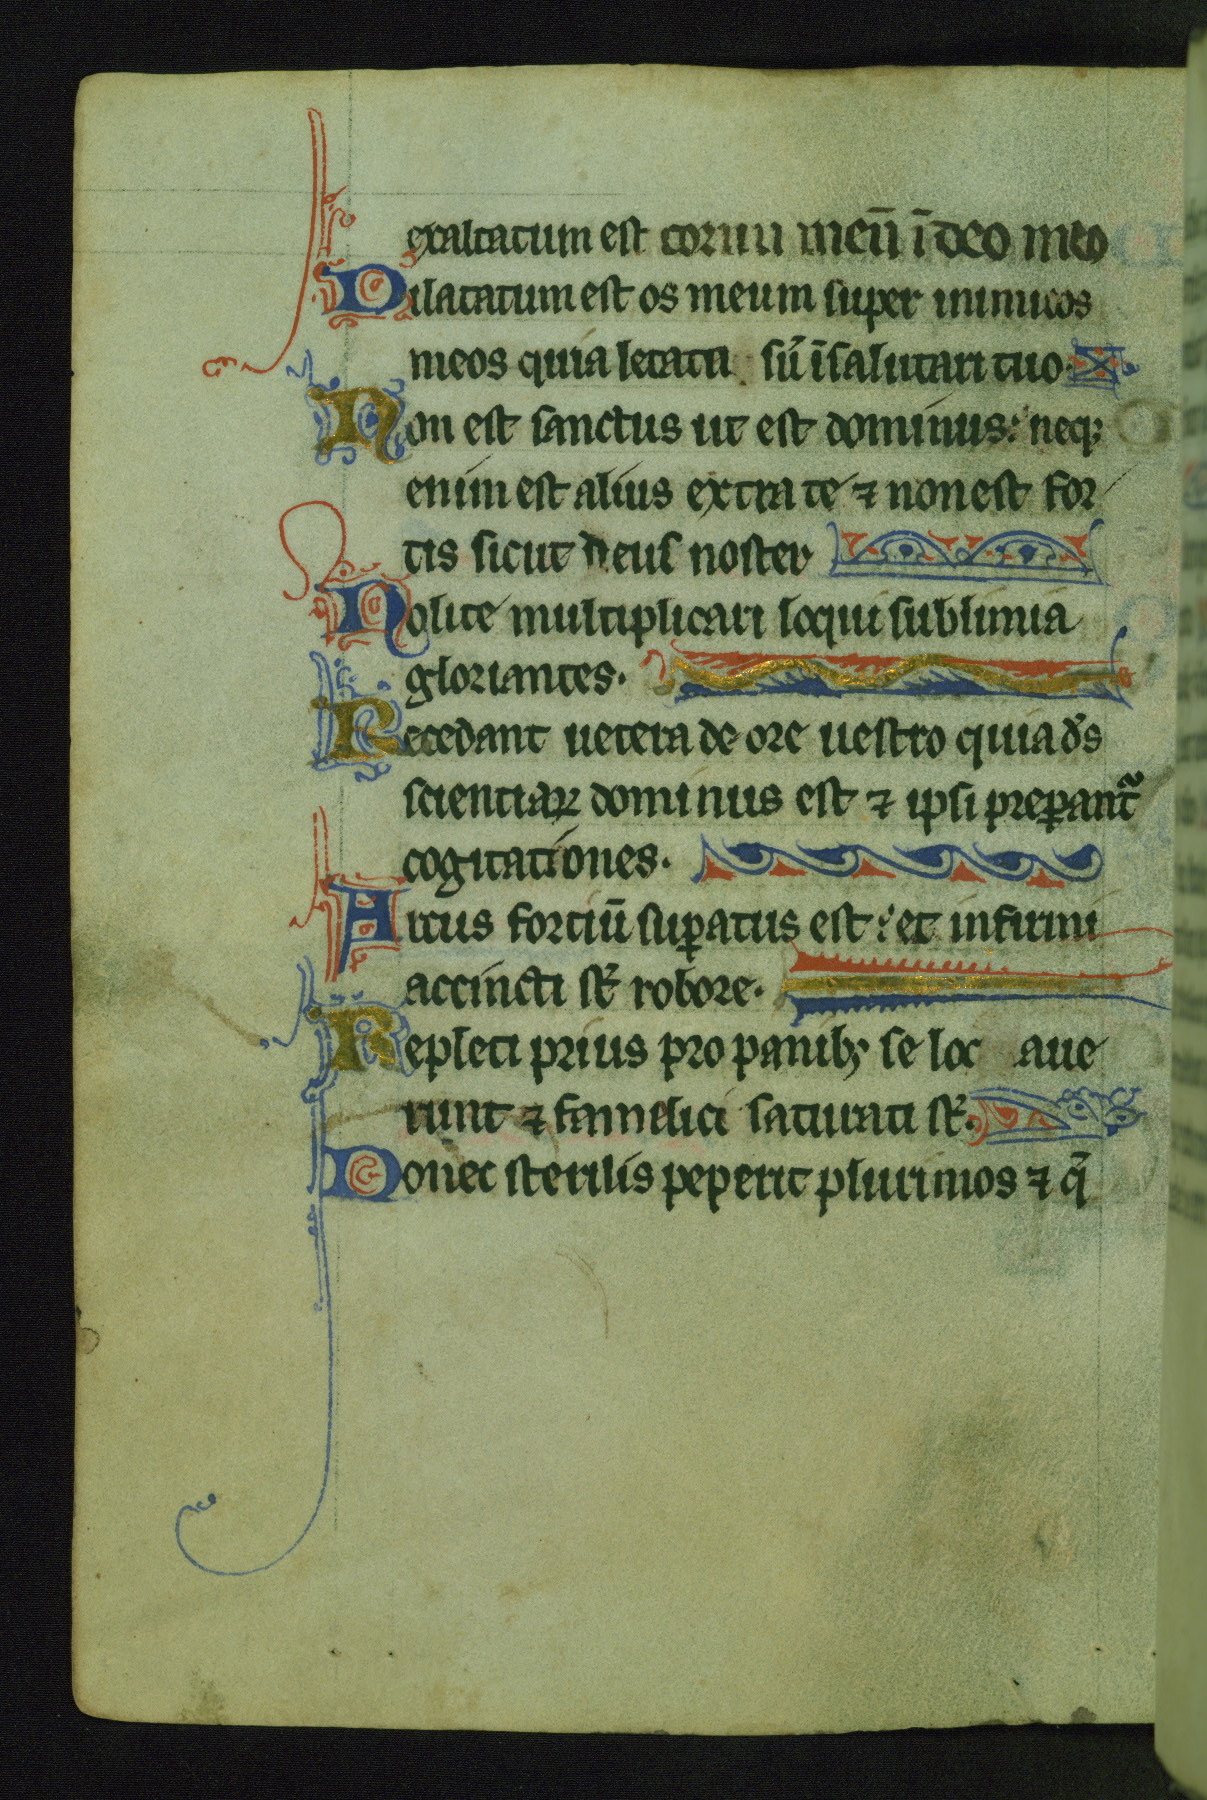 exaltatum est cornu meū ī deo meo
Dilatatum est os meum super inimicos
meos quia letata sū īsalutari tuo.
Non est sanctus ut est dominus: neqꝫ
enim est alius extra te ⁊ non est for
tis sicut deus noster
Nolite multiplicari loqui sublimia
gloriantes.
Recedant uetera de ore uestro quia ds̄
scientiaꝝ dominus est ⁊ ipsi preꝑant᷑
cogitationes.
Arcus fortiū suꝑatus est: et infirmi
accincti st̄ robore.
Repleti prius pro panibꝫ se loc aue
runt ⁊ famelici saturati st̄.
Donec sterilis peperit plurimos ⁊ q̄